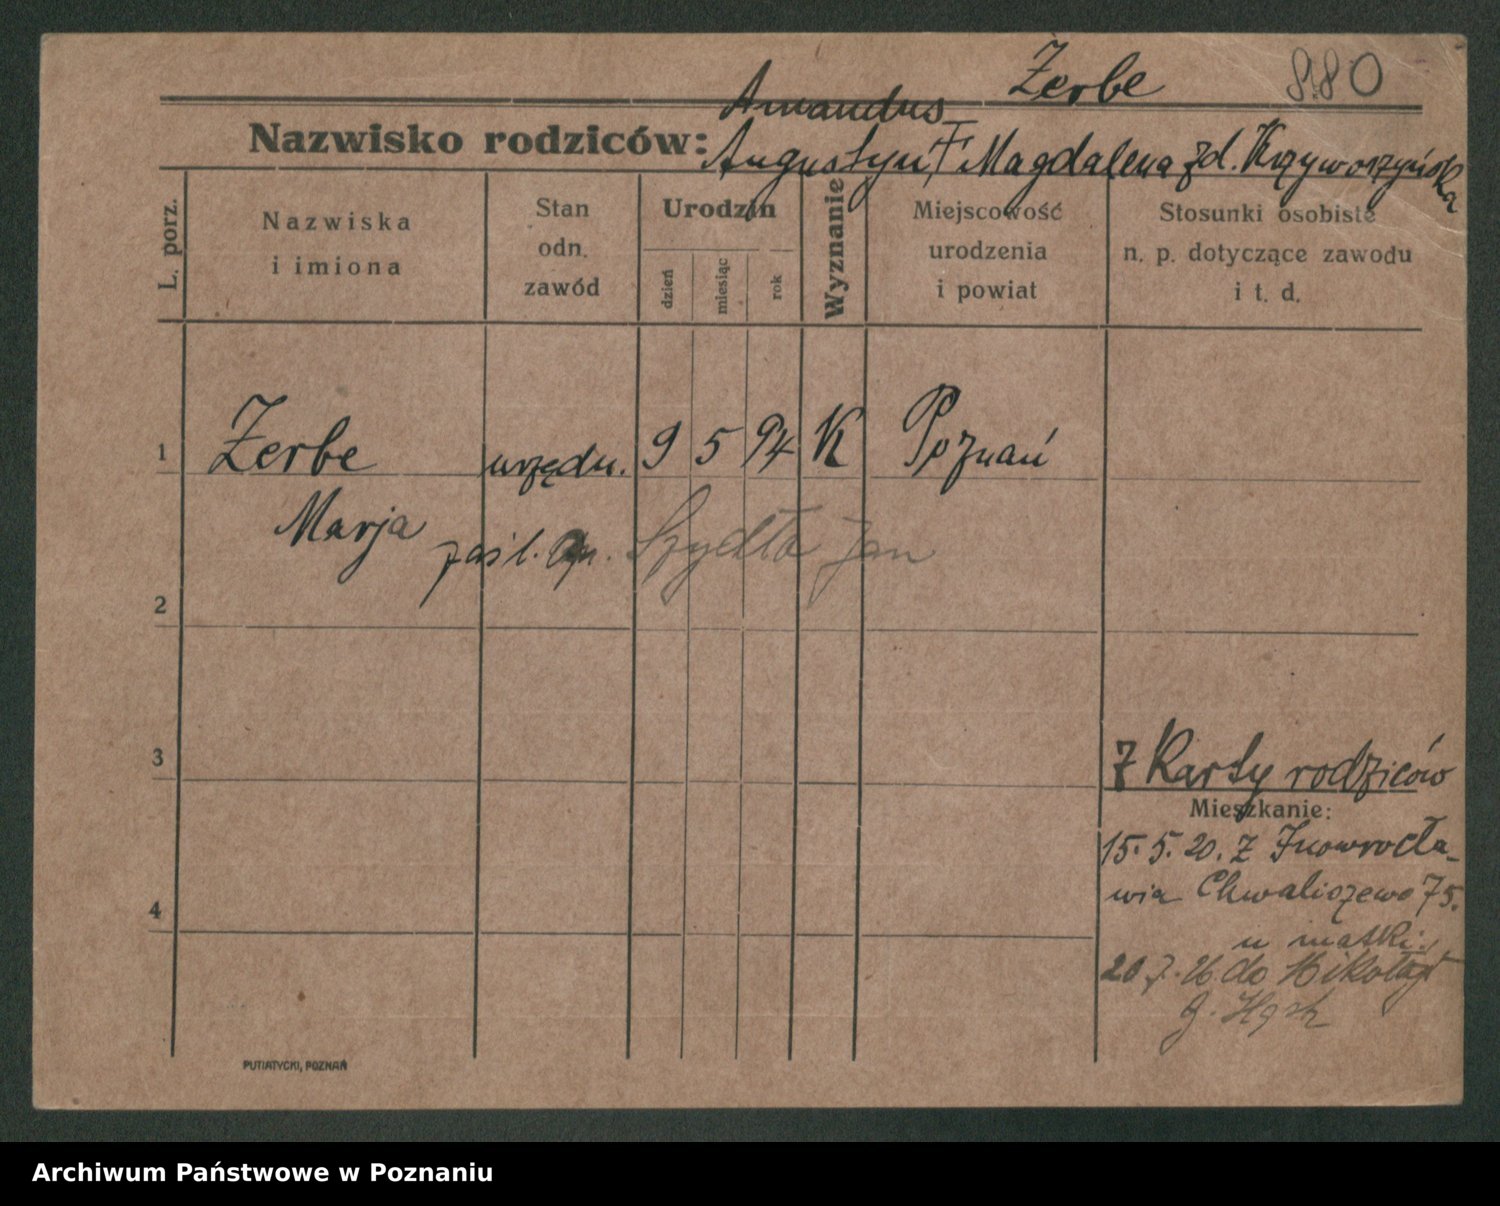 Żerbe 880
Amandus
Nazwisko rodziców: Augustyn † Magdalena zd. Krzyworzyńska
L. porz.
Nazwiska i imiona
Stan odn. zawód
Urodzin
dzień
miesiąc
rok
Wyznanie
Miejscowość urodzenia i powiat
Stosunki osobiste n. p. dotyczące zawodu i t. d.
1 Żerbe urzędn. 9 5 94 K Poznań
Marja zaśl. Szydło Jan
2
3
7 Karty rodziców
Mieszkanie:
15.5.20. z Inowrocła-
wia Chwaliszewo 75.
4
u matki.
20.7.26. do
PUTIATYCKI, POZNAŃ
Archiwum Państwowe w Poznaniu